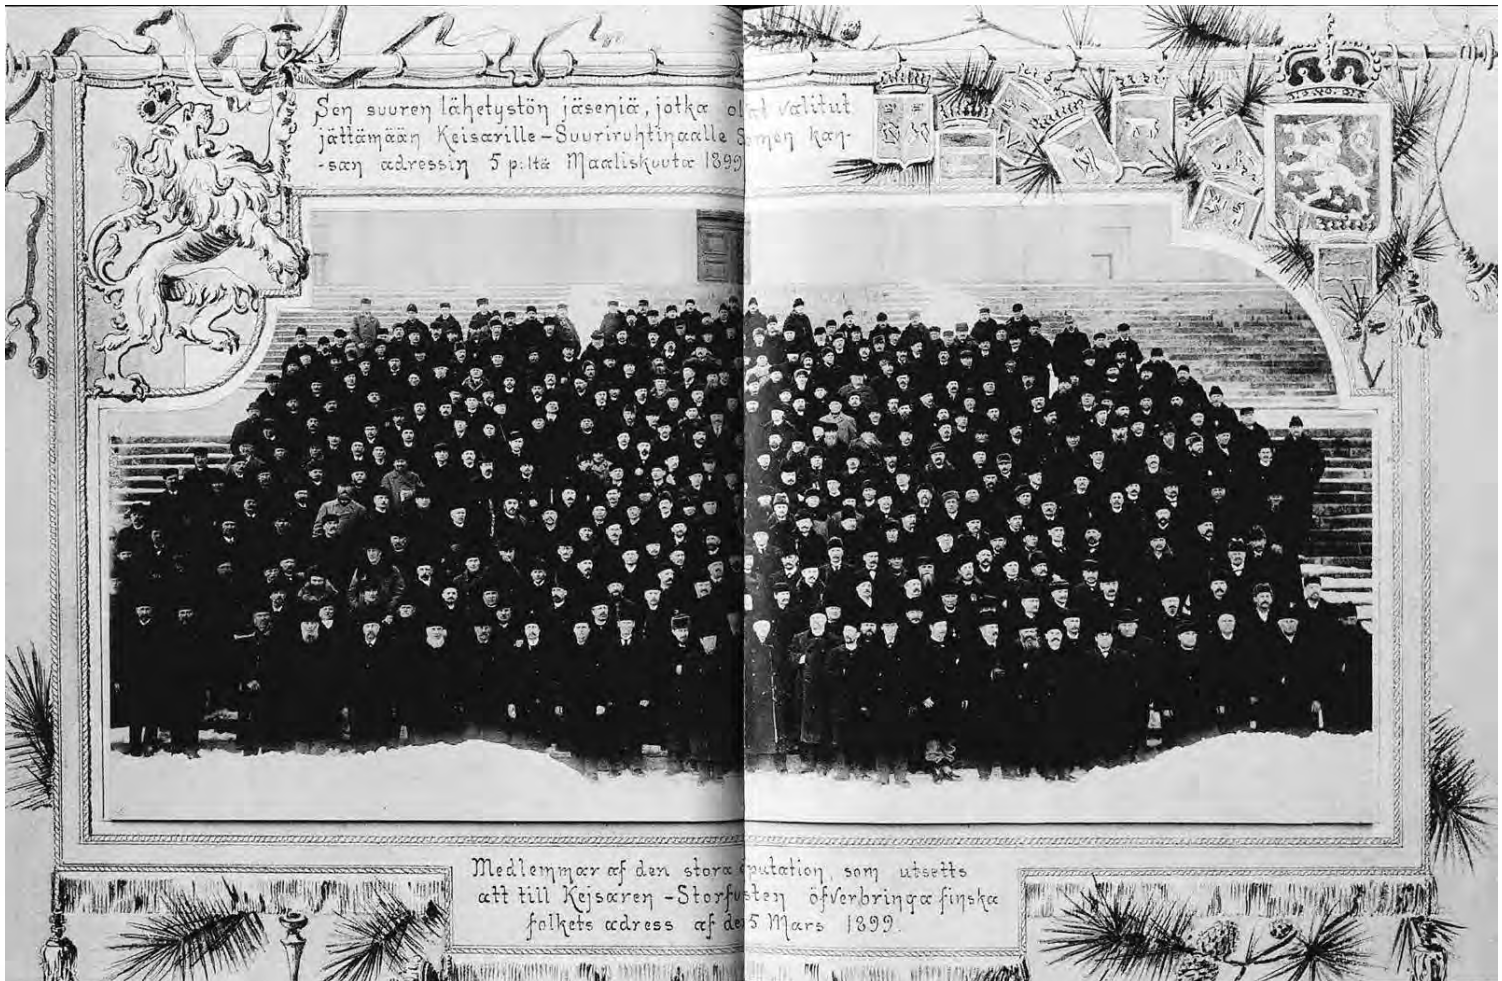 Sen suuren lähetystön jäseniä, jotka olivat valitut
jättämään Keisarille-Suuriruhtinaalle Suomen kan-
-san adressin 5 p:ltä Maaliskuuta 1899
Medlemmar af den stora deputation, som utsetts
att till Kejsaren -Storfursten öfverbringa finska
folkets adress af den 5 Mars 1899.